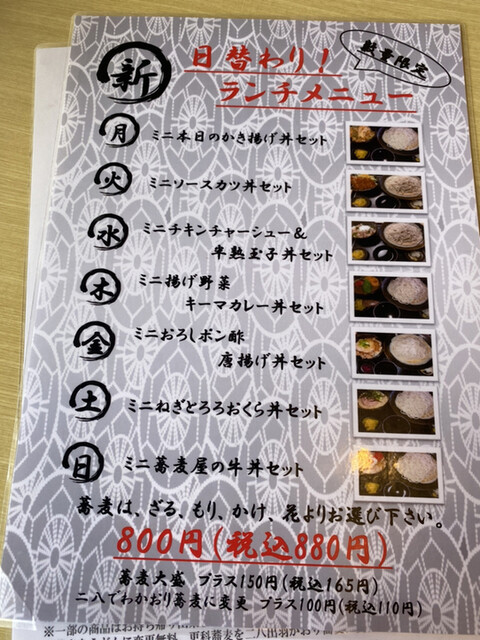 新
日替わり!
ランチメニュー
数量限定
月 ミニ本日のかき揚げ丼セット
火 ミニソースカツ丼セット
水 ミニチキンチャーシュー&
半熟玉子丼セット
木 ミニ揚げ野菜
キーマカレー丼セット
金 ミニおろしポン酢
唐揚げ丼セット
土 ミニねぎとろろおくら丼セット
日 ミニ蕎麦屋の牛丼セット
蕎麦は、ざる、もり、かけ、花よりお選び下さい。
800円(税込880円)
蕎麦大盛 プラス150円(税込165円)
二八でわかおり蕎麦に変更 プラス100円(税込110円)
※一部の商品はお持ち帰り